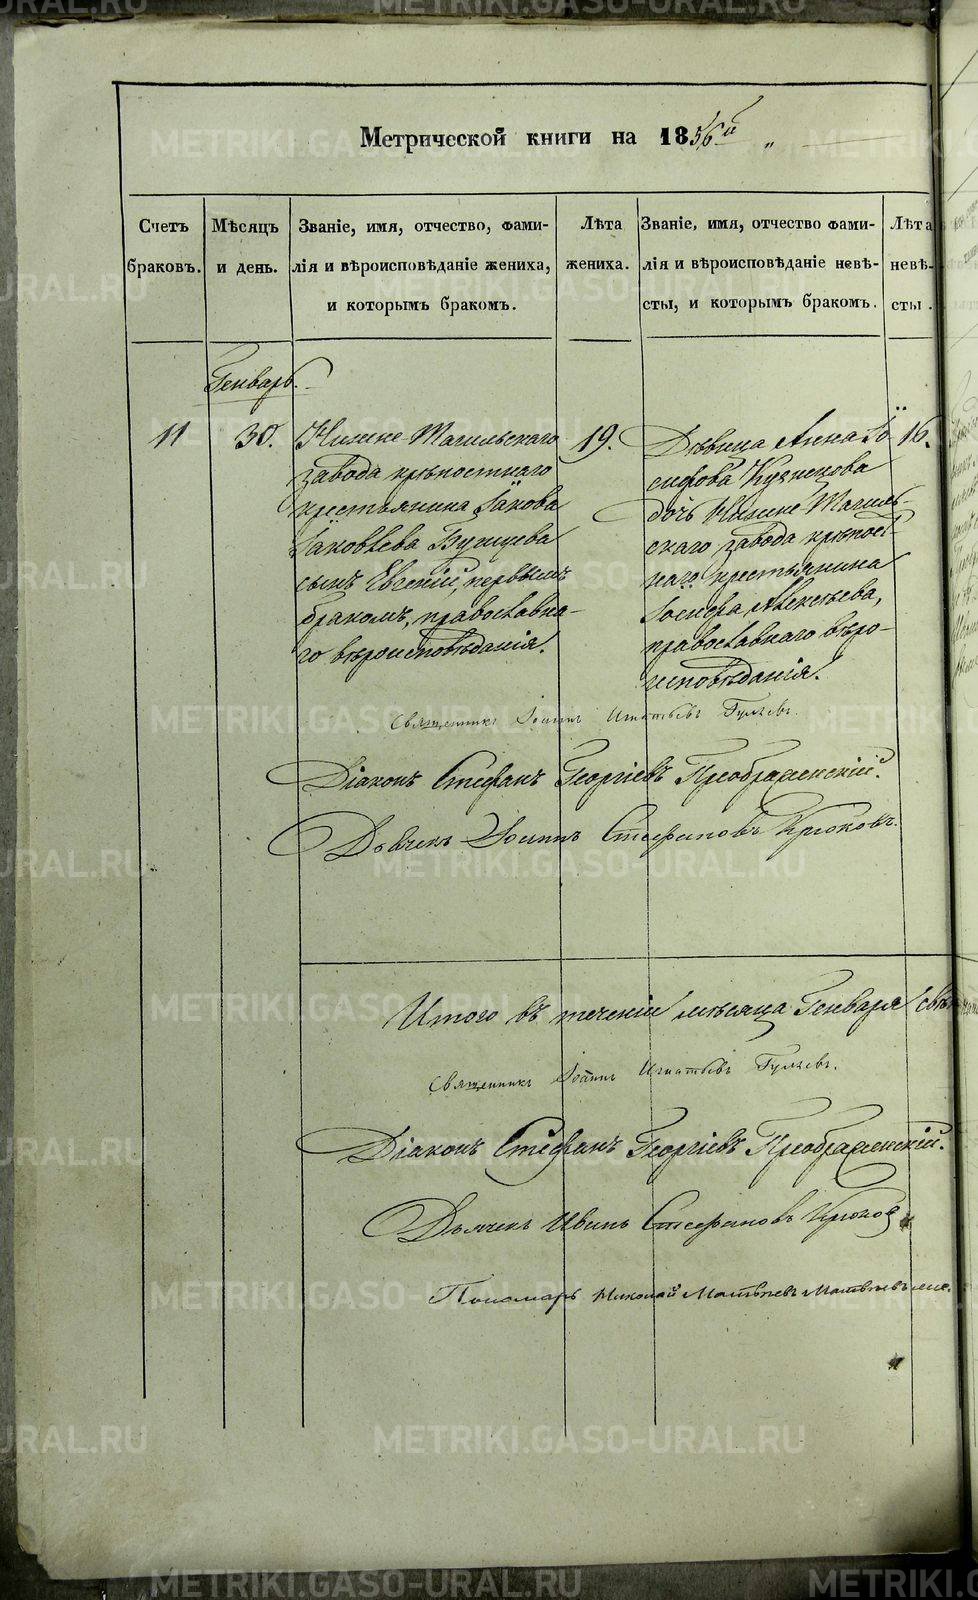 Метрической книги на 1856й „
Счетъ браковъ.
Мѣсяцъ и день.
Званіе, имя, отчество, фами-
лія и вѣроисповѣданіе жениха,
и которымъ бракомъ.
Лѣта жениха.
Званіе, имя, отчество фами-
лія и вѣроисповѣданіе невѣ-
сты, и которымъ бракомъ.
Лѣта невѣ-
сты.
Генварь.
11
30.
Нижне-Тагильскаго
завода крѣпостнаго
крестьянина Іакова
Іаковлева
сынъ Евгеній, первымъ
бракомъ, православна-
го вѣроисповѣданія.
19.
Дѣвица Анна Іо
сифова Кузнецова
дочь Нижне-Тагиль-
скаго завода крѣпост
наго крестьянина
Іосифа Алексѣева,
православнаго вѣро-
исповѣданія.
16.
Священникъ Іоаннъ Игнатьевъ
Діаконъ Стефанъ Георгіевъ Преображенскій.
Дьячекъ Іоаннъ Стефановъ Крюковъ.
Итого въ теченіи мѣсяца Генваря
Священникъ Іоаннъ Игнатьевъ
Діаконъ Стефанъ Георгіевъ Преображенскій.
Дьячекъ Иванъ Стефановъ Крюковъ
Пономарь Николай Матвѣевъ
METRIKI.GASO-URAL.RU